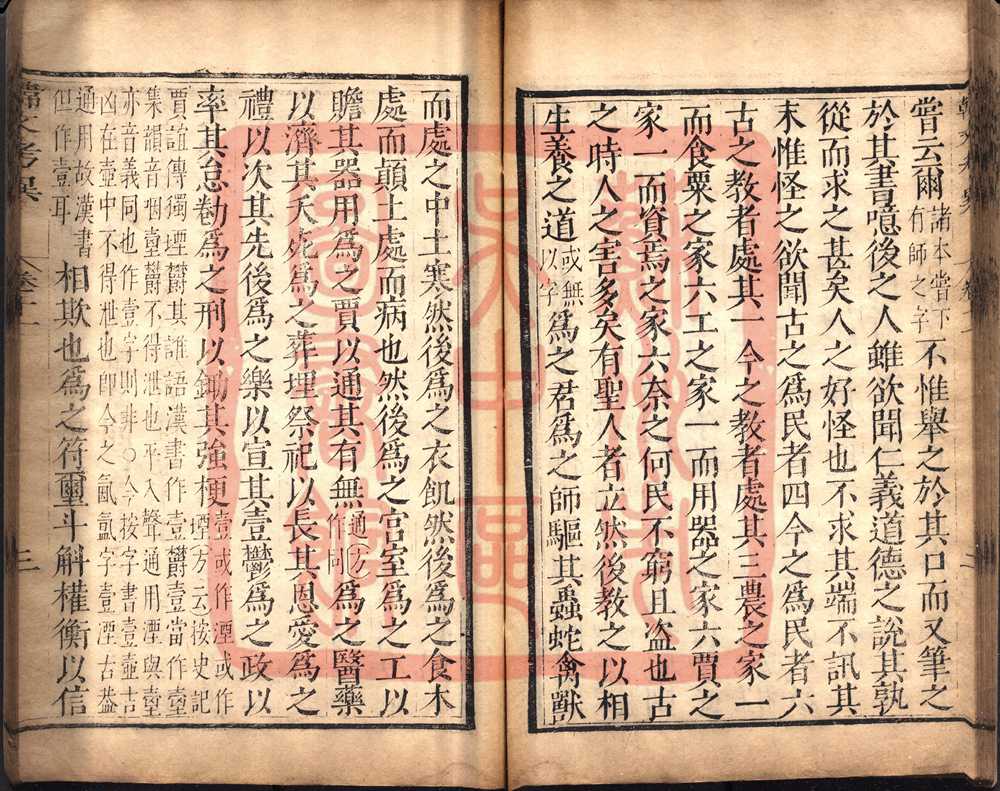 嘗云爾諸本嘗下有師之字不惟舉之於其口而又筆之
於其書噫後之人雖欲聞仁義道德之說其孰
從而求之甚矣人之好怪也不求其端不訊其
末惟怪之欲聞古之爲民者四今之爲民者六
古之教者處其一今之教者處其三農之家一
而食粟之家六工之家一而用器之家六賈之
家一而資焉之家六奈之何民不窮且盗也古
之時人之害多矣有聖人者立然後教之以相
生養之道或無以字爲之君爲之師驅其蟲蛇禽獸
而處之中土寒然後爲之衣飢然後爲之食木
處而顛土處而病也然後爲之宮室爲之工以
贍其器用爲之賈以通其有無通方作同爲之醫藥
以濟其夭死爲之葬埋祭祀以長其恩愛爲之
禮以次其先後爲之樂以宣其壹鬱爲之政以
率其怠勌爲之刑以鋤其強梗壹或作湮或作堙方云按史記
賈誼傳獨堙鬱其誰語漢書作壹鬱壹當作壼
集韻音咽壼鬱不得泄也平入聲通用湮與壼
亦音義同也作壹字則非○今按字書壹壼古
凶在壼中不得泄也即今之氤氳字壹湮古益
通用故漢書但作壹耳相欺也爲之符璽斗斛權衡以信
韓文考異 卷十一 三